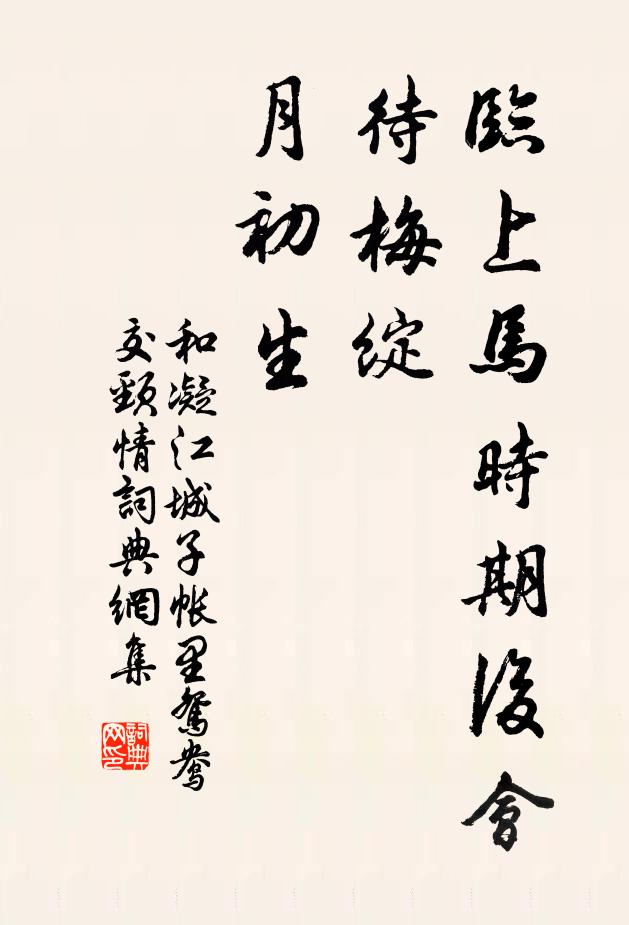 臨上馬時期後會
待梅綻
月初生
和凝江城子帳里鴛鴦
交頸情詞典網集
詞典
网印